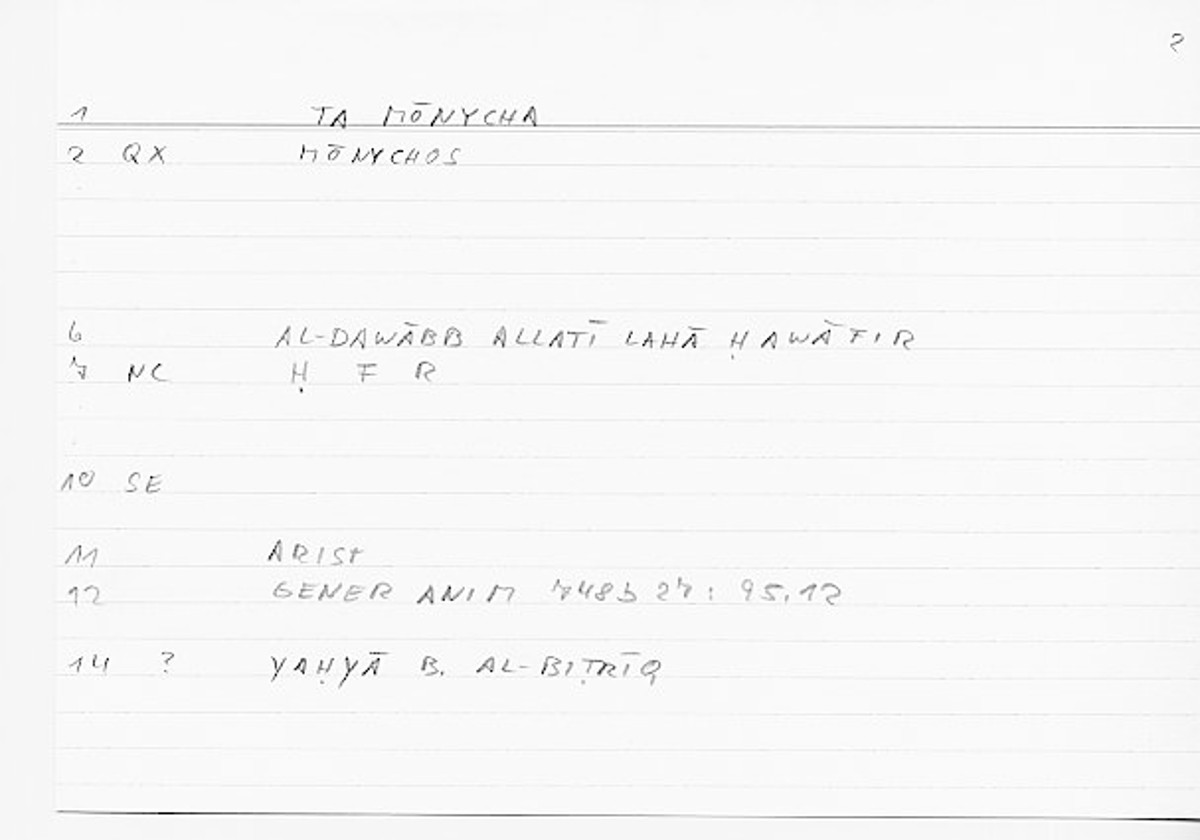 2
1 TA MŌNYCHA
2 QX MŌNYCHOS
6 AL-DAWĀBB ALLATĪ LAHĀ ḤAWĀFIR
7 NC Ḥ F R
10 SE
11 ARIST
12 GENER ANIM 748b 27: 95,12
14 ? YAḤYĀ B. AL-BIṬRĪQ